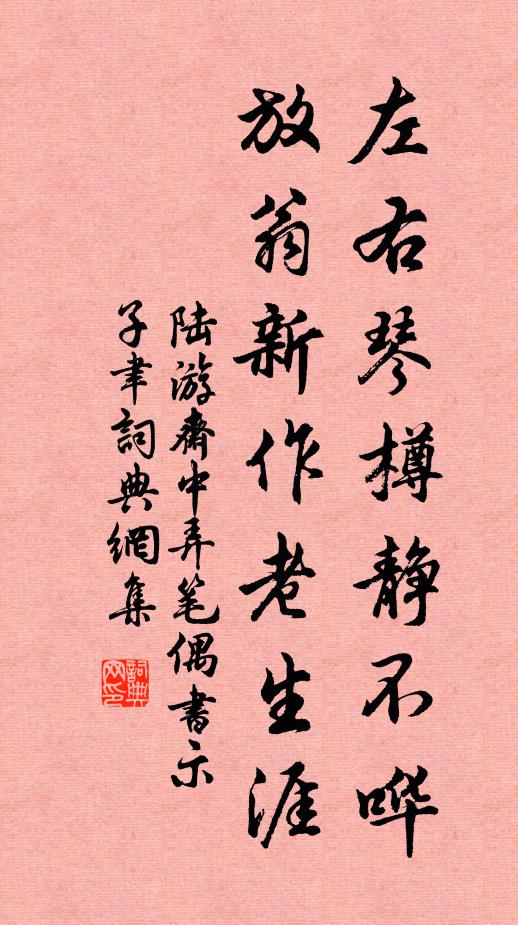 左右琴樽静不哗
放翁新作老生涯
陆游斋中弄笔偶书示
子聿詞典網集
詞典网印